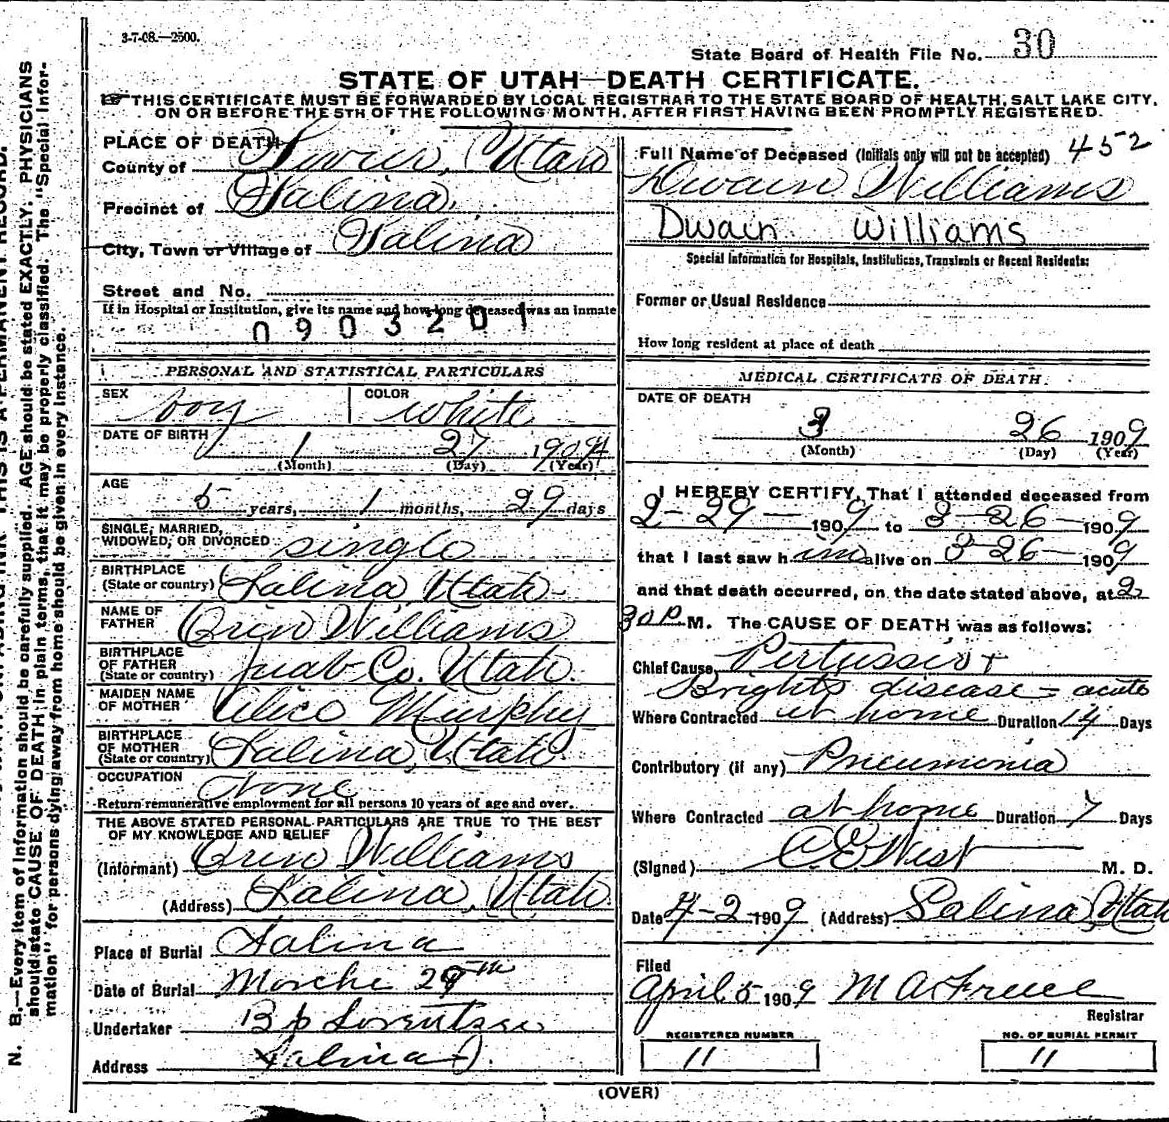 3-7-08.—2500.
State Board of Health File No. 30
STATE OF UTAH—DEATH CERTIFICATE.
☞ THIS CERTIFICATE MUST BE FORWARDED BY LOCAL REGISTRAR TO THE STATE BOARD OF HEALTH, SALT LAKE CITY,
ON OR BEFORE THE 5TH OF THE FOLLOWING MONTH, AFTER FIRST HAVING BEEN PROMPTLY REGISTERED.
PLACE OF DEATH
County of Sevier, Utah
Precinct of Salina,
City, Town or Village of Salina
Street and No.
If in Hospital or Institution, give its name and how long deceased was an inmate
0903201
PERSONAL AND STATISTICAL PARTICULARS
SEX boy COLOR white
DATE OF BIRTH 1 27 1904
(Month) (Day) (Year)
AGE
5 years, 1 months, 29 days
SINGLE, MARRIED,
WIDOWED, OR DIVORCED single
BIRTHPLACE
(State or country) Salina Utah
NAME OF
FATHER Orin Williams
BIRTHPLACE
OF FATHER
(State or country) Juab Co. Utah.
MAIDEN NAME
OF MOTHER Alice Murphy
BIRTHPLACE
OF MOTHER
(State or country) Salina, Utah.
OCCUPATION None
Return remunerative employment for all persons 10 years of age and over.
THE ABOVE STATED PERSONAL PARTICULARS ARE TRUE TO THE BEST
OF MY KNOWLEDGE AND BELIEF
(Informant) Orin Williams
(Address) Salina, Utah.
Place of Burial Salina
Date of Burial Marche 29th
Undertaker
Address Salina
Full Name of Deceased (Initials only will not be accepted) 452
Dwain Williams
Dwain Williams
Special Information for Hospitals, Institutions, Transients or Recent Residents:
Former or Usual Residence
How long resident at place of death
MEDICAL CERTIFICATE OF DEATH.
DATE OF DEATH
3 26 1909
(Month) (Day) (Year)
I HEREBY CERTIFY, That I attended deceased from
2-29-1909 to 3-26-1909
that I last saw him alive on 3-26-1909
and that death occurred, on the date stated above, at 2
30 P. M. The CAUSE OF DEATH was as follows:
Chief Cause Pertussis +
Brights disease = acute
Where Contracted at home Duration 14 Days
Contributory (if any) Pneumonia
Where Contracted at home Duration 7 Days
(Signed) C E West M. D.
Date 4-2-1909 (Address) Salina, Utah
Filed
April 5 1909 M A
Registrar
REGISTERED NUMBER
11
NO. OF BURIAL PERMIT
11
(OVER)
N. B.—Every item of information should be carefully supplied. AGE should be stated EXACTLY. PHYSICIANS
should state CAUSE OF DEATH in plain terms, that it may be properly classified. The "Special Infor-
mation" for persons dying away from home should be given in every instance.